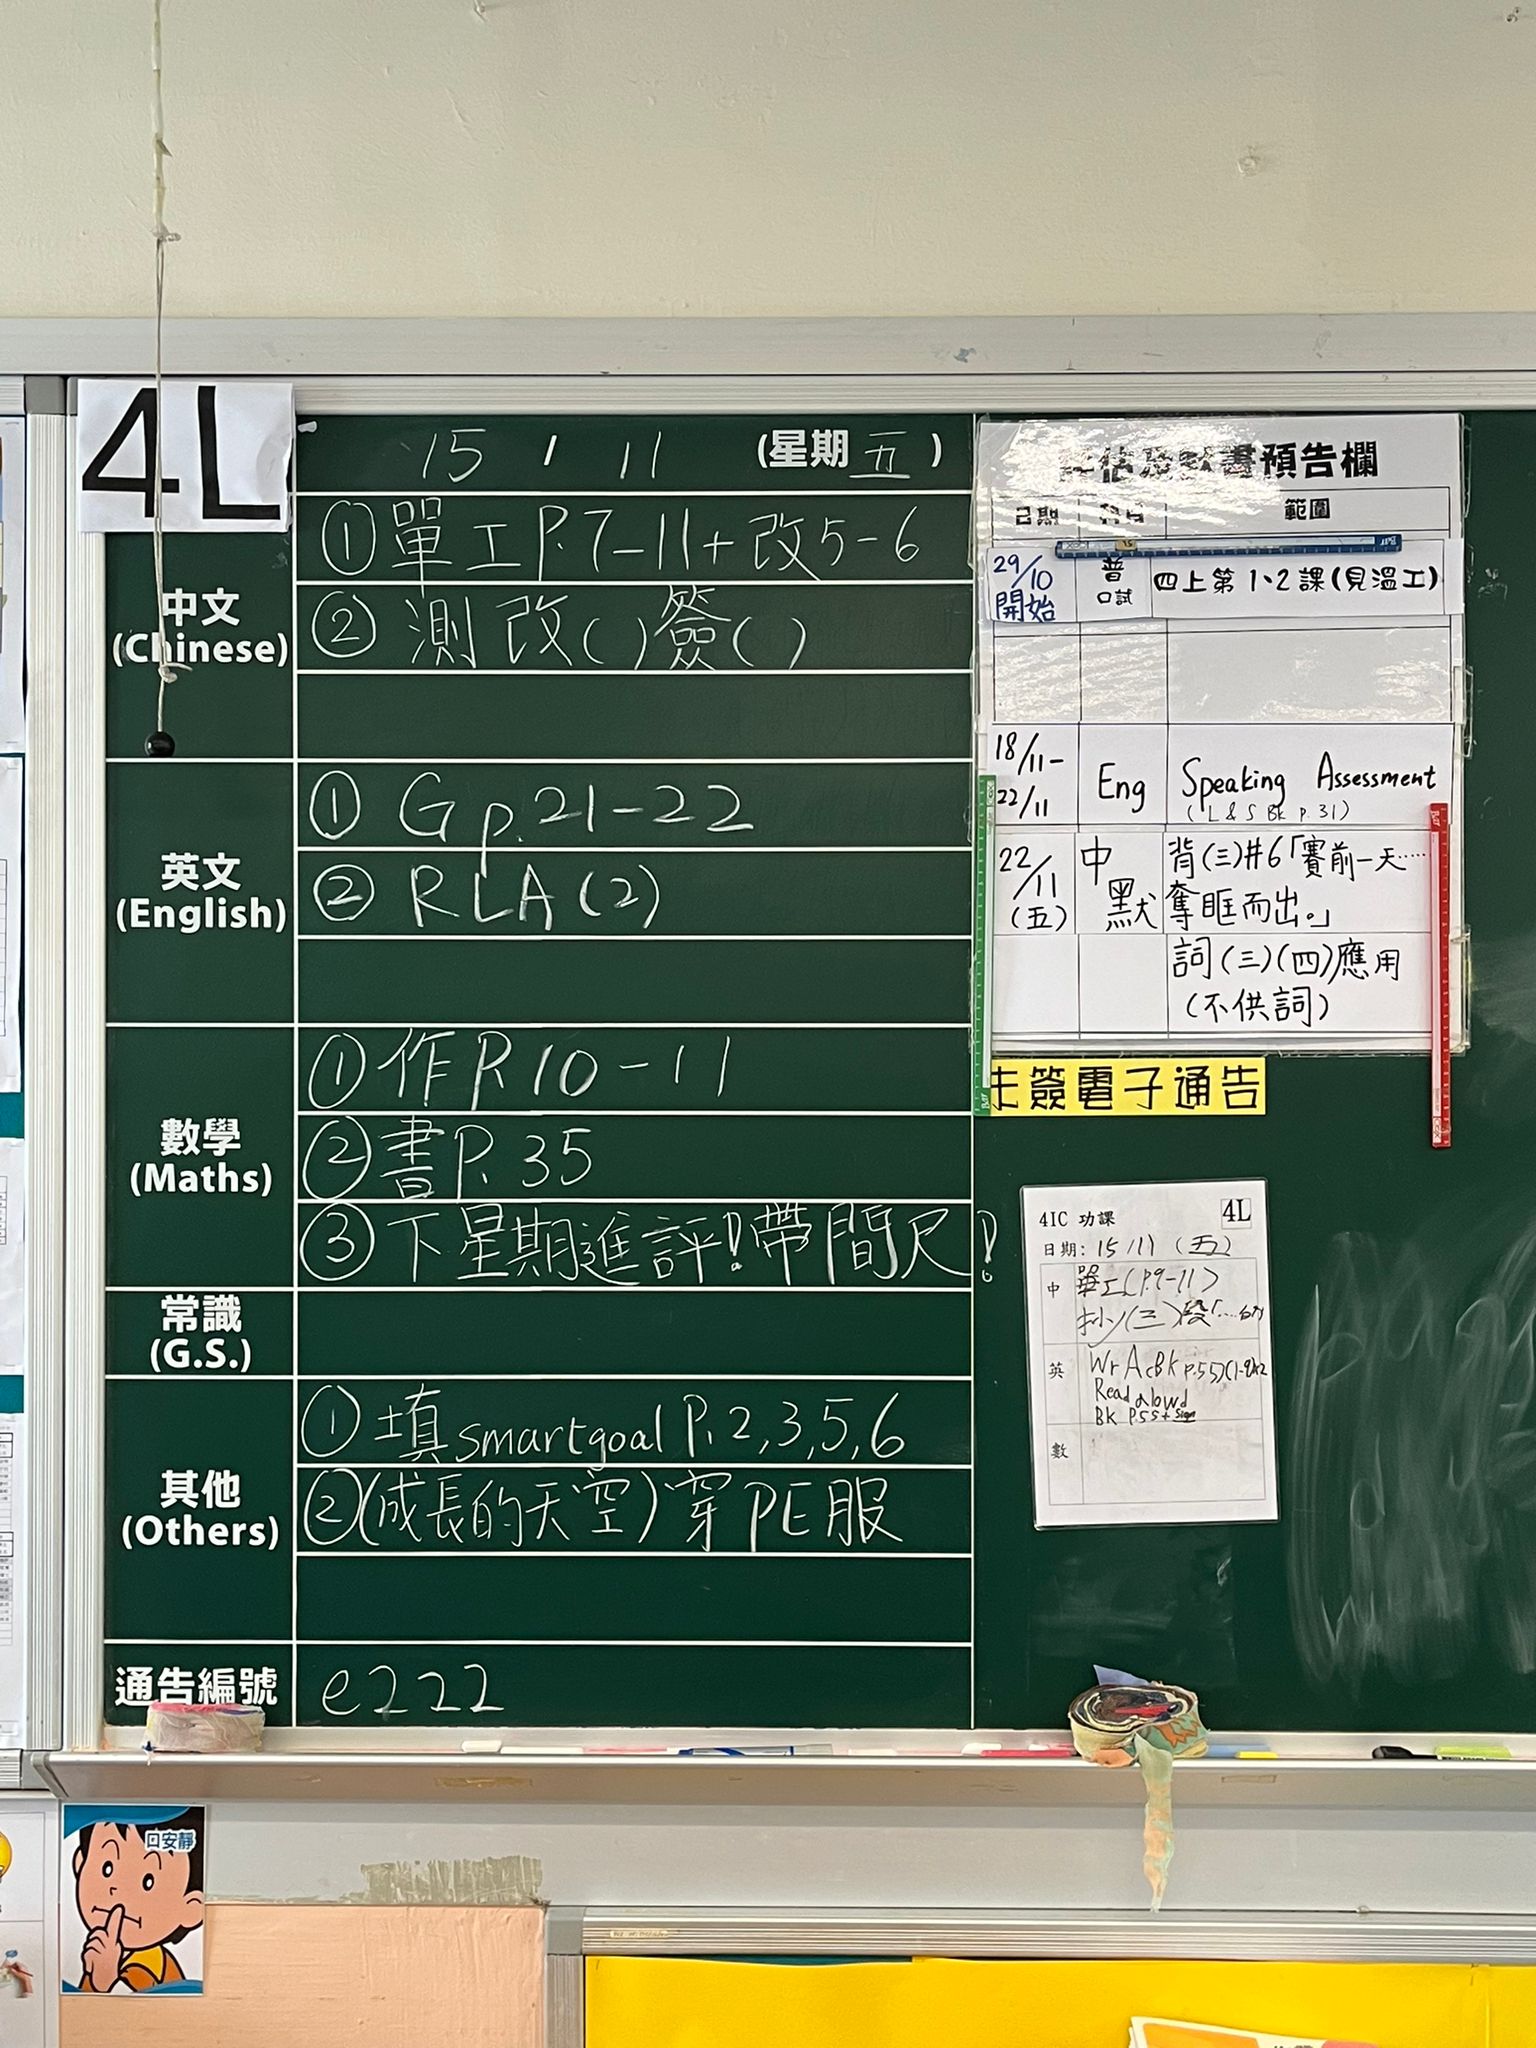 4L
15 / 11 (星期五)
中文
(Chinese)
①單工P.7-11+改5-6
②測改( )簽( )
英文
(English)
①Gp.21-22
②RLA(2)
數學
(Maths)
①作P.10-11
②書P.35
③下星期進評!帶間尺!
常識
(G.S.)
其他
(Others)
①填smartgoal P.2,3,5,6
②(成長的天空)穿PE服
通告編號
e222
書預告欄
日期 科目 範圍
29/10 開始 普 口試 四上第1、2課(見溫工)
18/11-22/11 Eng Speaking Assessment
(L & S Bk p.31)
22/11 (五) 中默 背(三)#6「賽前一天……
奪眶而出。」
詞(三)(四)應用
(不供詞)
未簽電子通告
4IC 功課 4L
日期: 15/11 (五)
中 單工(P.9-11)
抄(三)段「……
英 Wr AcBk p.55)(1-9)x2
Read aloud
BK P55+sign
數
口安靜